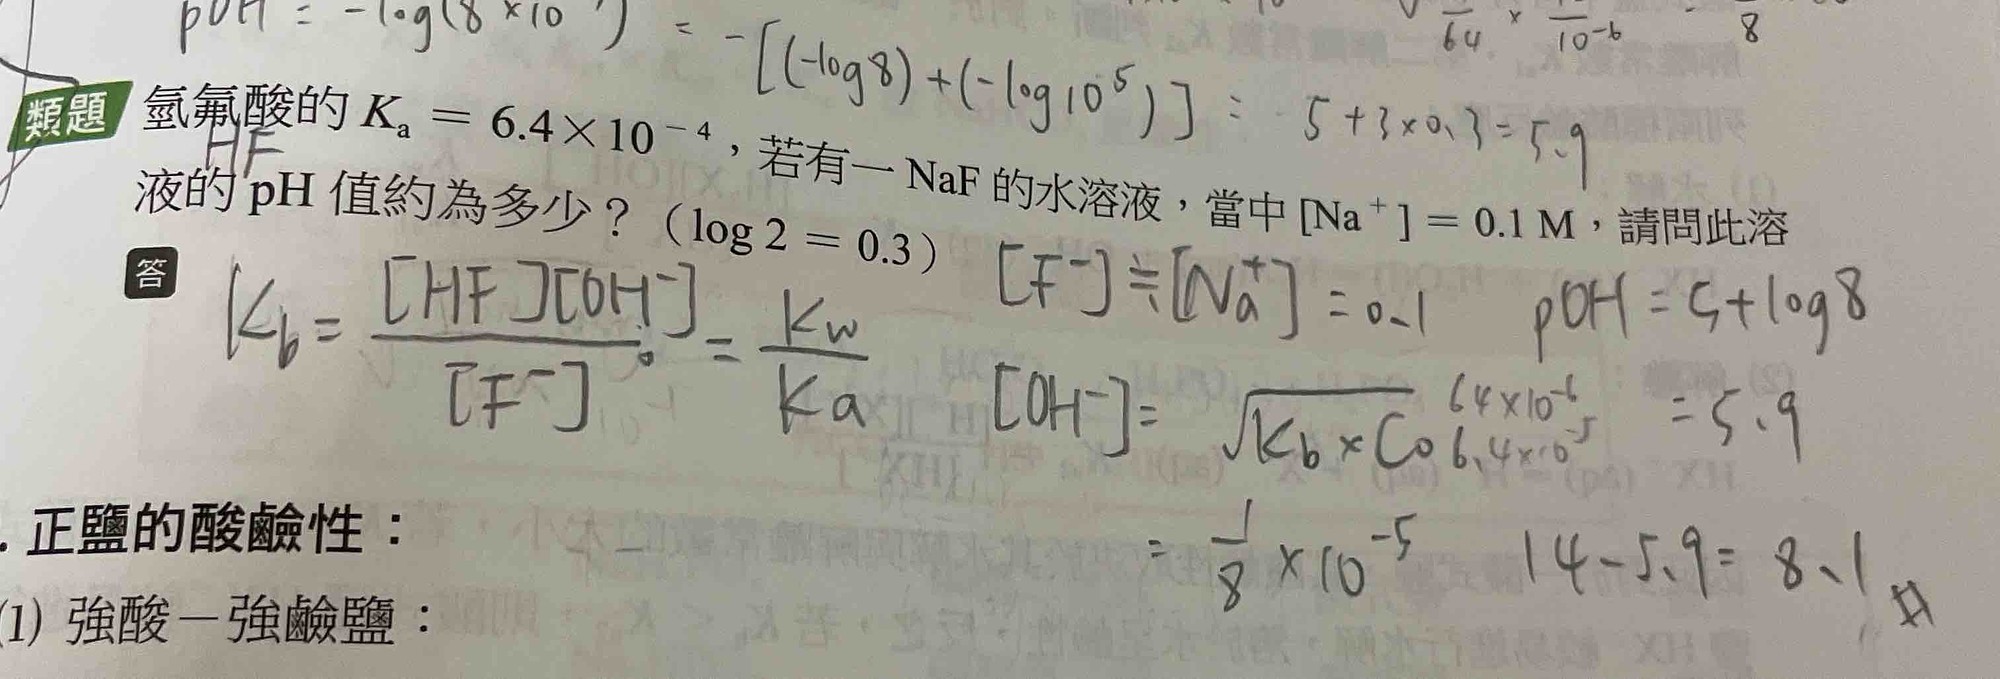 pOH = -log(8×10
= -[(-log8)+(-log10⁻⁵)] = 5+3×0.3=5.9
1/64 × 1/10⁻⁶
1/8
類題 氫氟酸的 Kₐ = 6.4×10⁻⁴，若有一 NaF 的水溶液，當中 [Na⁺] = 0.1 M，請問此溶
HF
液的 pH 值約為多少？（log 2 = 0.3）
答
Kb = [HF][OH⁻]/[F⁻] = Kw/Ka
[F⁻]≒[Na⁺] = 0.1
[OH⁻] = √Kb×C₀
64×10⁻⁶
6.4×10⁻⁵
= 1/8 ×10⁻⁵
pOH = 5+log8
= 5.9
14-5.9= 8.1 #
. 正鹽的酸鹼性：
(1) 強酸－強鹼鹽：